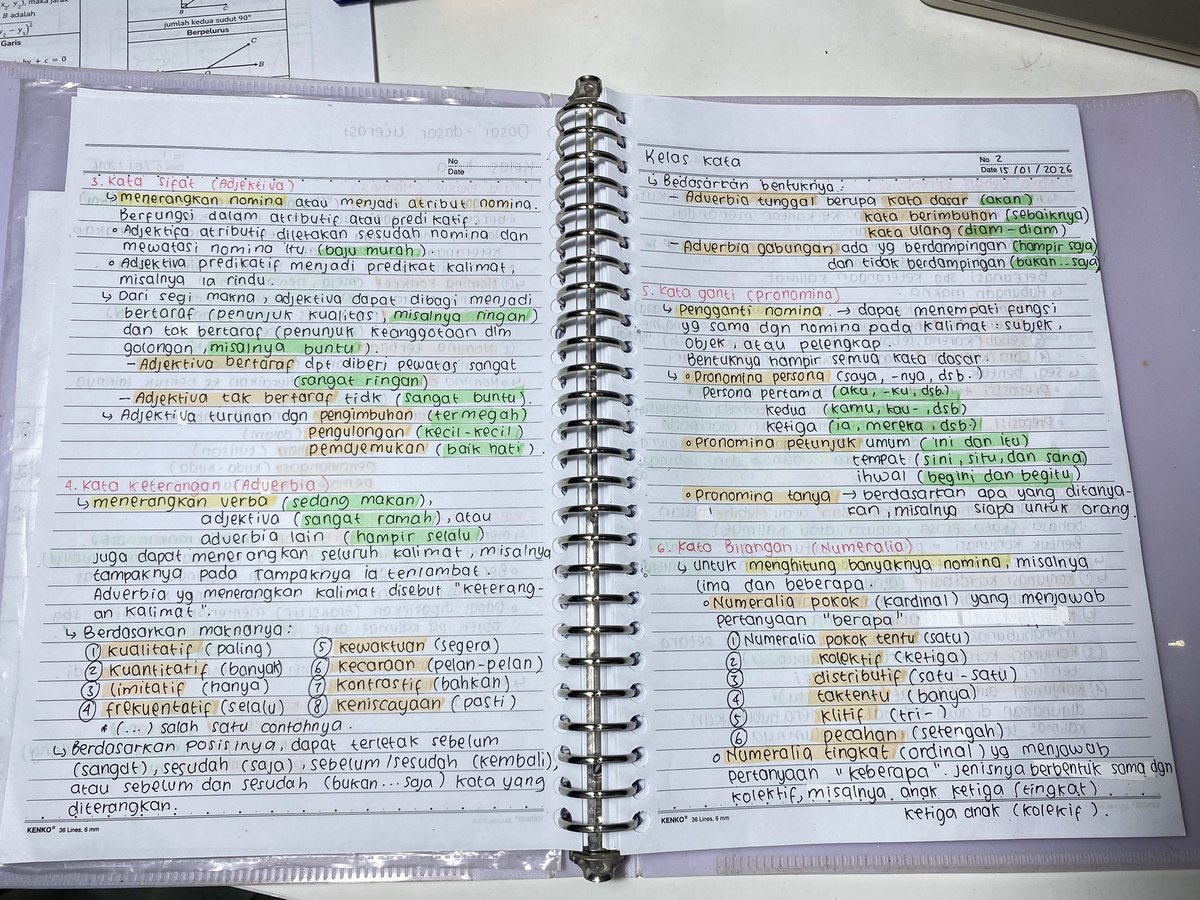 x₂, y₂), maka jarak
B adalah
y₂ − y₁)²
Garis
by + c = 0
B
C
jumlah kedua sudut 90°
Berpelurus
C
B
O
No
Date
3. Kata Sifat (Adjektiva)
↳ menerangkan nomina atau menjadi atribut nomina.
Berfungsi dalam atributif atau predikatif.
∘ Adjektifa atributif diletakan sesudah nomina dan
mewatasi nomina itu (baju murah).
∘ Adjektiva predikatif menjadi predikat kalimat,
misalnya ia rindu.
↳ Dari segi makna, adjektiva dapat dibagi menjadi
bertaraf (penunjuk kualitas, misalnya ringan)
dan tak bertaraf (penunjuk keanggotaan dlm
golongan, misalnya buntu).
– Adjektiva bertaraf dpt diberi pewatas sangat
(sangat ringan)
– Adjektiva tak bertaraf tidk (sangat buntu).
↳ Adjektiva turunan dgn pengimbuhan (termegah)
pengulangan (kecil-kecil)
pemajemukan (baik hati).
4. Kata Keterangan (Adverbia)
↳ menerangkan verba (sedang makan),
adjektiva (sangat ramah), atau
adverbia lain (hampir selalu)
juga dapat menerangkan seluruh kalimat, misalnya
tampaknya pada Tampaknya ia terlambat.
Adverbia yg menerangkan kalimat disebut "keterang-
an kalimat".
↳ Berdasarkan maknanya:
① kualitatif (paling) ⑤ kewaktuan (segera)
② kuantitatif (banyak) ⑥ kecaraan (pelan-pelan)
③ limitatif (hanya) ⑦ kontrastif (bahkan)
④ frekuentatif (selalu) ⑧ keniscayaan (pasti)
* (...) salah satu contohnya.
↳ Berdasarkan posisinya, dapat terletak sebelum
(sangat), sesudah (saja), sebelum/sesudah (kembali),
atau sebelum dan sesudah (bukan...saja) kata yang
diterangkan.
KENKO® 36 Lines, 6 mm
Kelas Kata
No 2
Date 15/01/2026
↳ Bedasarkan bentuknya:
– Adverbia tunggal berupa kata dasar (akan)
kata berimbuhan (sebaiknya)
kata ulang (diam-diam)
– Adverbia gabungan ada yg berdampingan (hampir saja)
dan tidak berdampingan (bukan...saja)
5. Kata ganti (Pronomina)
↳ Pengganti nomina. → dapat menempati fungsi
yg sama dgn nomina pada kalimat: subjek,
objek, atau pelengkap.
Bentuknya hampir semua kata dasar.
↳ ∘ Pronomina persona (saya, -nya, dsb.
Persona pertama (aku, -ku, dsb.)
kedua (kamu, kau-, dsb)
ketiga (ia, mereka, dsb.)
∘ Pronomina petunjuk umum (ini dan itu)
tempat (sini, situ, dan sana)
ihwal (begini dan begitu)
∘ Pronomina tanya → berdasarkan apa yang ditanya-
kan, misalnya siapa untuk orang.
6. Kata Bilangan (Numeralia)
↳ untuk menghitung banyaknya nomina, misalnya
lima dan beberapa.
∘ Numeralia pokok (kardinal) yang menjawab
pertanyaan "berapa"
① Numeralia pokok tentu (satu)
② kolektif (ketiga)
③ distributif (satu-satu)
④ taktentu (banya)
⑤ klitif (tri-)
⑥ pecahan (setengah)
∘ Numeralia tingkat (ordinal) yg menjawab
pertanyaan "keberapa". Jenisnya berbentuk sama dgn
kolektif, misalnya anak ketiga (tingkat)
ketiga anak (kolekif).
KENKO® 36 Lines, 6 mm